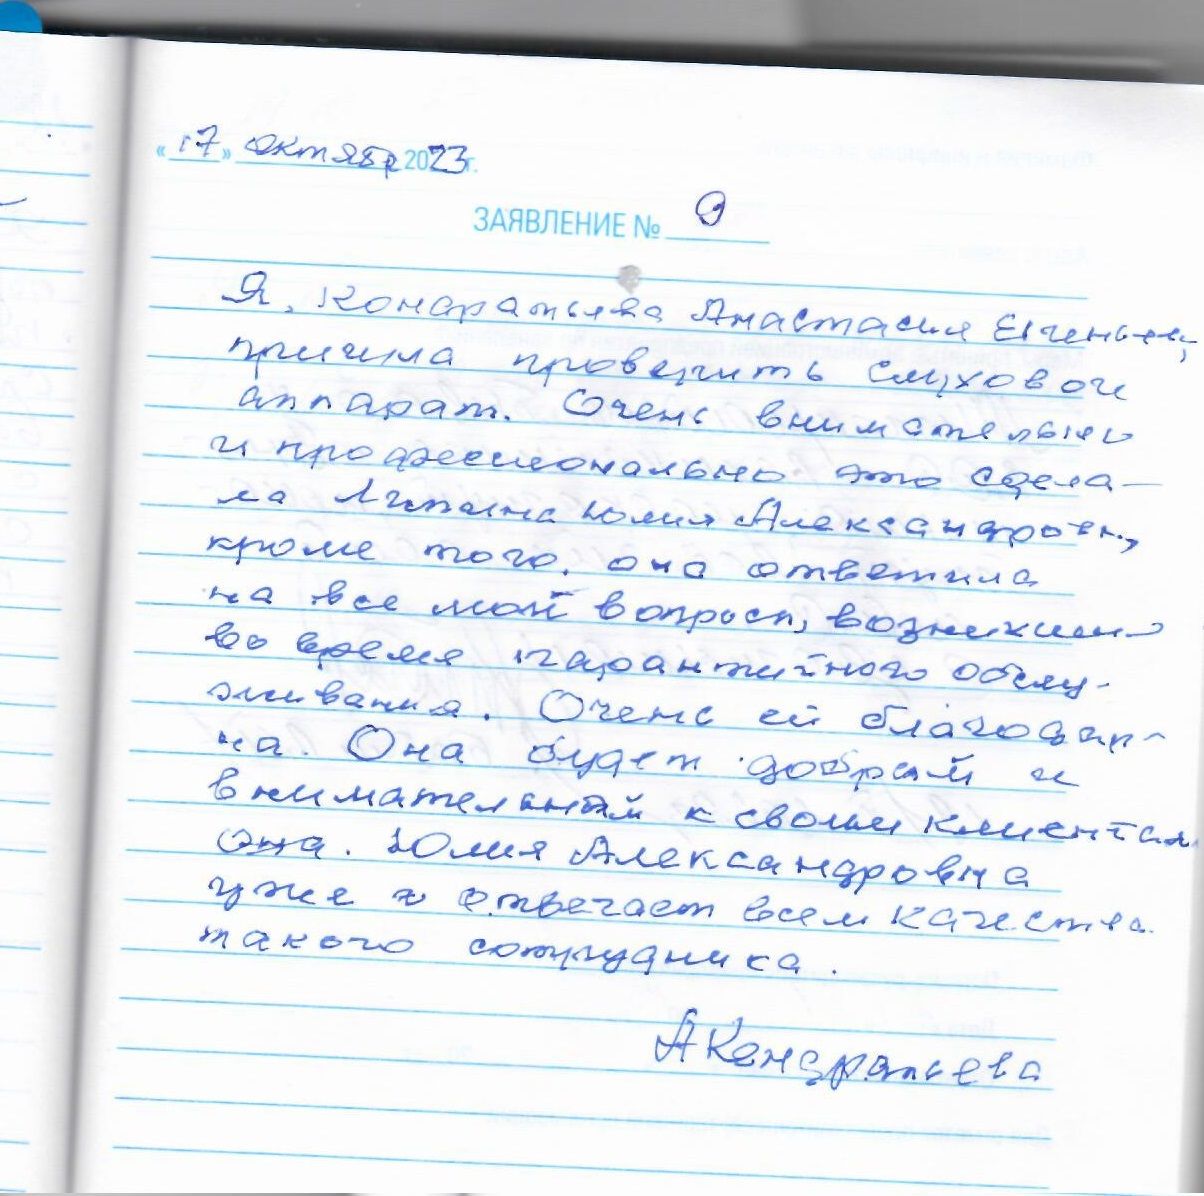 «17» октябр 2023 г.
ЗАЯВЛЕНИЕ № 9
Я, Кондратьева Анастасия
пришла проверить слуховой
аппарат. Очень внимательно
и профессионально это сдела-
ла Юлия Александровн,
кроме того, она ответила
на все мой вопросы, возникши
во время гарантийного обслу-
живания. Очень ей благодар-
на. Она будет добрый и
внимательный к своим клиентам
она. Юлия Александровна
уже отвечает всем качества
такого сотрудника.
АКондратьева